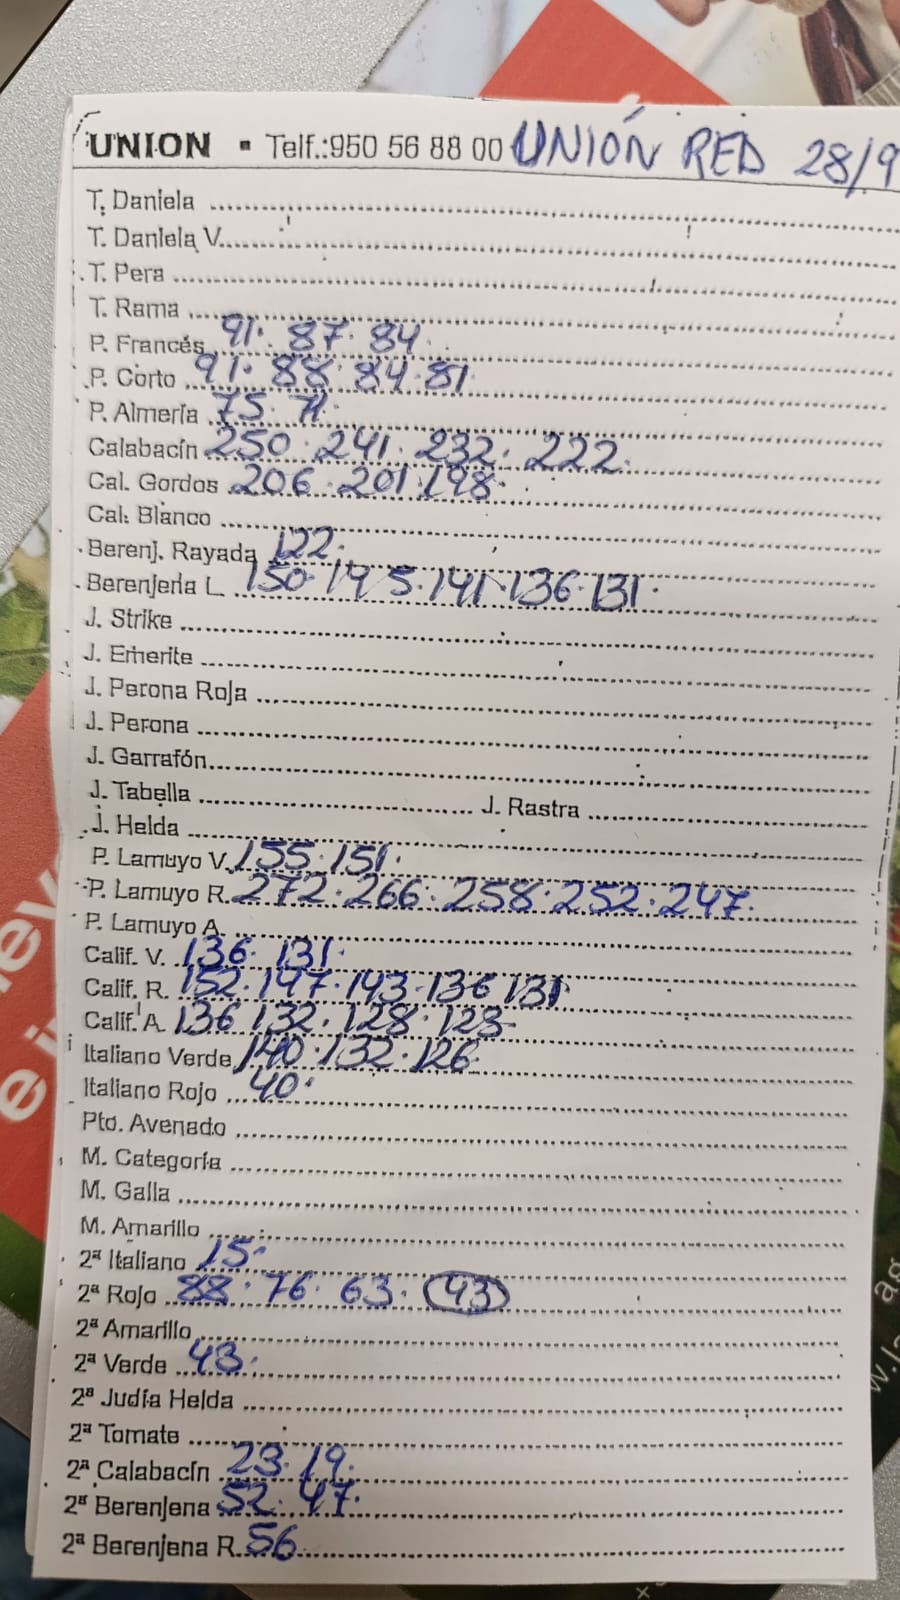 UNION ▪ Telf.:950 56 88 00 UNIÓN RED 28/9
T. Daniela
T. Daniela V.
T. Pera
T. Rama
P. Francés 91. 87. 84.
P. Corto 91. 88. 84. 81.
P. Almería 75. 71.
Calabacín 250. 241. 232. 222.
Cal. Gordos 206. 201. 198.
Cal. Blanco
Berenj. Rayada 122.
Berenjena L. 150. 145. 141. 136. 131.
J. Strike
J. Emerite
J. Perona Roja
J. Perona
J. Garrafón
J. Tabella J. Rastra
J. Helda
P. Lamuyo V. 155. 151.
P. Lamuyo R. 272. 266. 258. 252. 247.
P. Lamuyo A.
Calif. V. 136. 131.
Calif. R. 152. 147. 143. 136 131.
Calif. A. 136 132. 128. 123.
Italiano Verde 140. 132. 126.
Italiano Rojo 40.
Pto. Avenado
M. Categoría
M. Galia
M. Amarillo
2ª Italiano 15.
2ª Rojo 88. 76. 63. 43
2ª Amarillo
2ª Verde 43.
2ª Judía Helda
2ª Tomate
2ª Calabacín 23. 19.
2ª Berenjena 52. 47.
2ª Berenjena R. 56